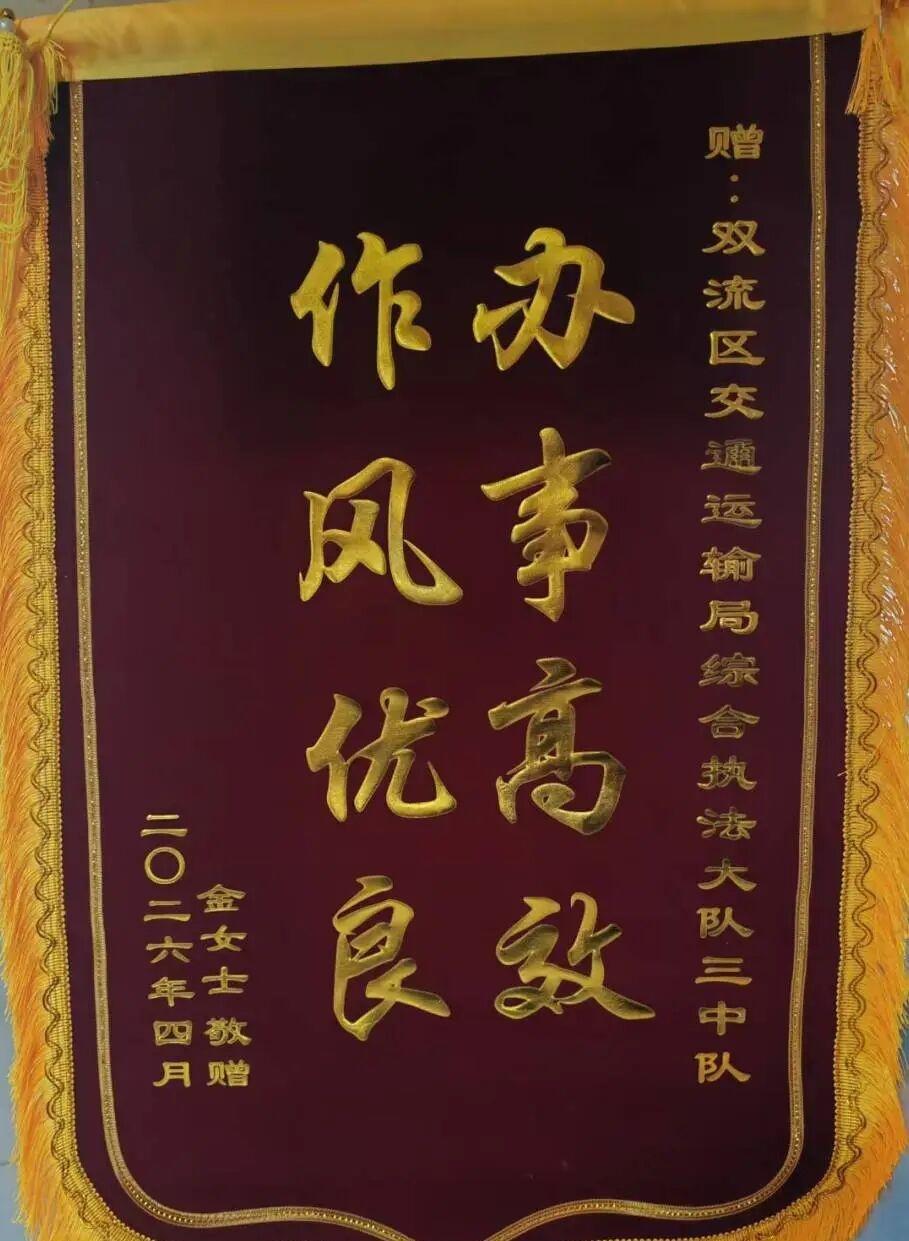 赠：双流区交通运输局综合执法大队三中队
办事高效
作风优良
金女士敬赠
二〇二六年四月